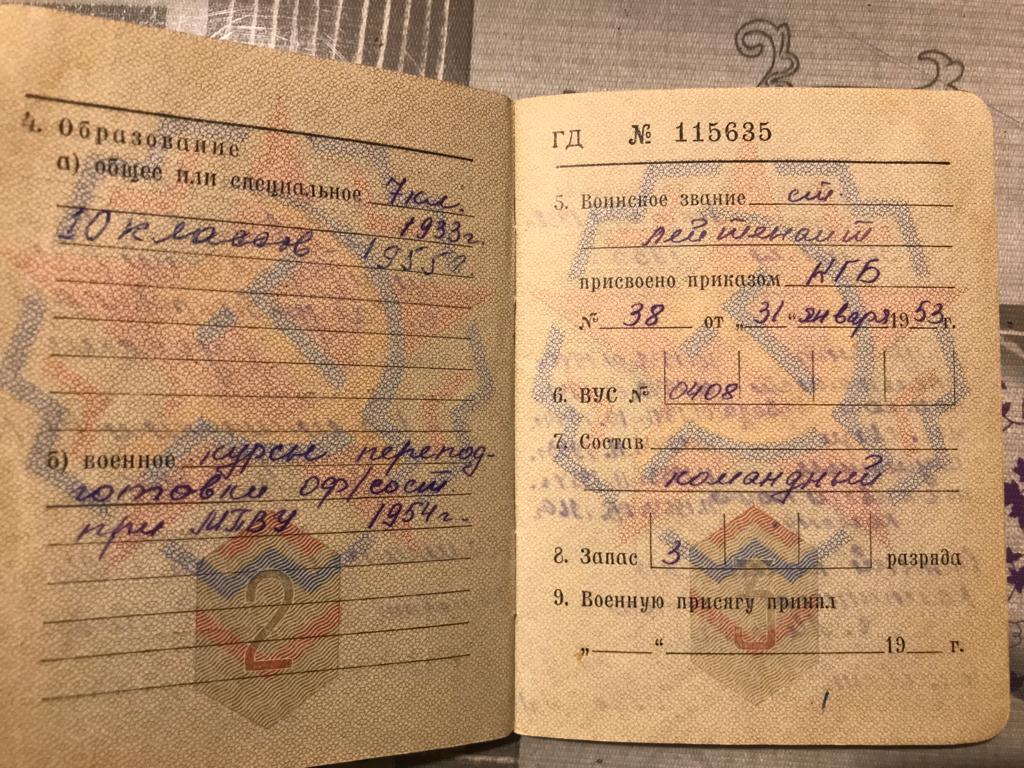 4. Образование
а) общее или специальное 7 кл.
1933г.
10 классов 1955г
б) военное курсы перепод-
готовки оф/сост
при МПВУ 1954г.
2
ГД № 115635
5. Воинское звание ст
лейтенант
присвоено приказом КГБ
№ 38 от „31“ января 1953г.
6. ВУС № 0408
7. Состав
командный
8. Запас 3 разряда
9. Военную присягу принял
„ “ 19 г.
3